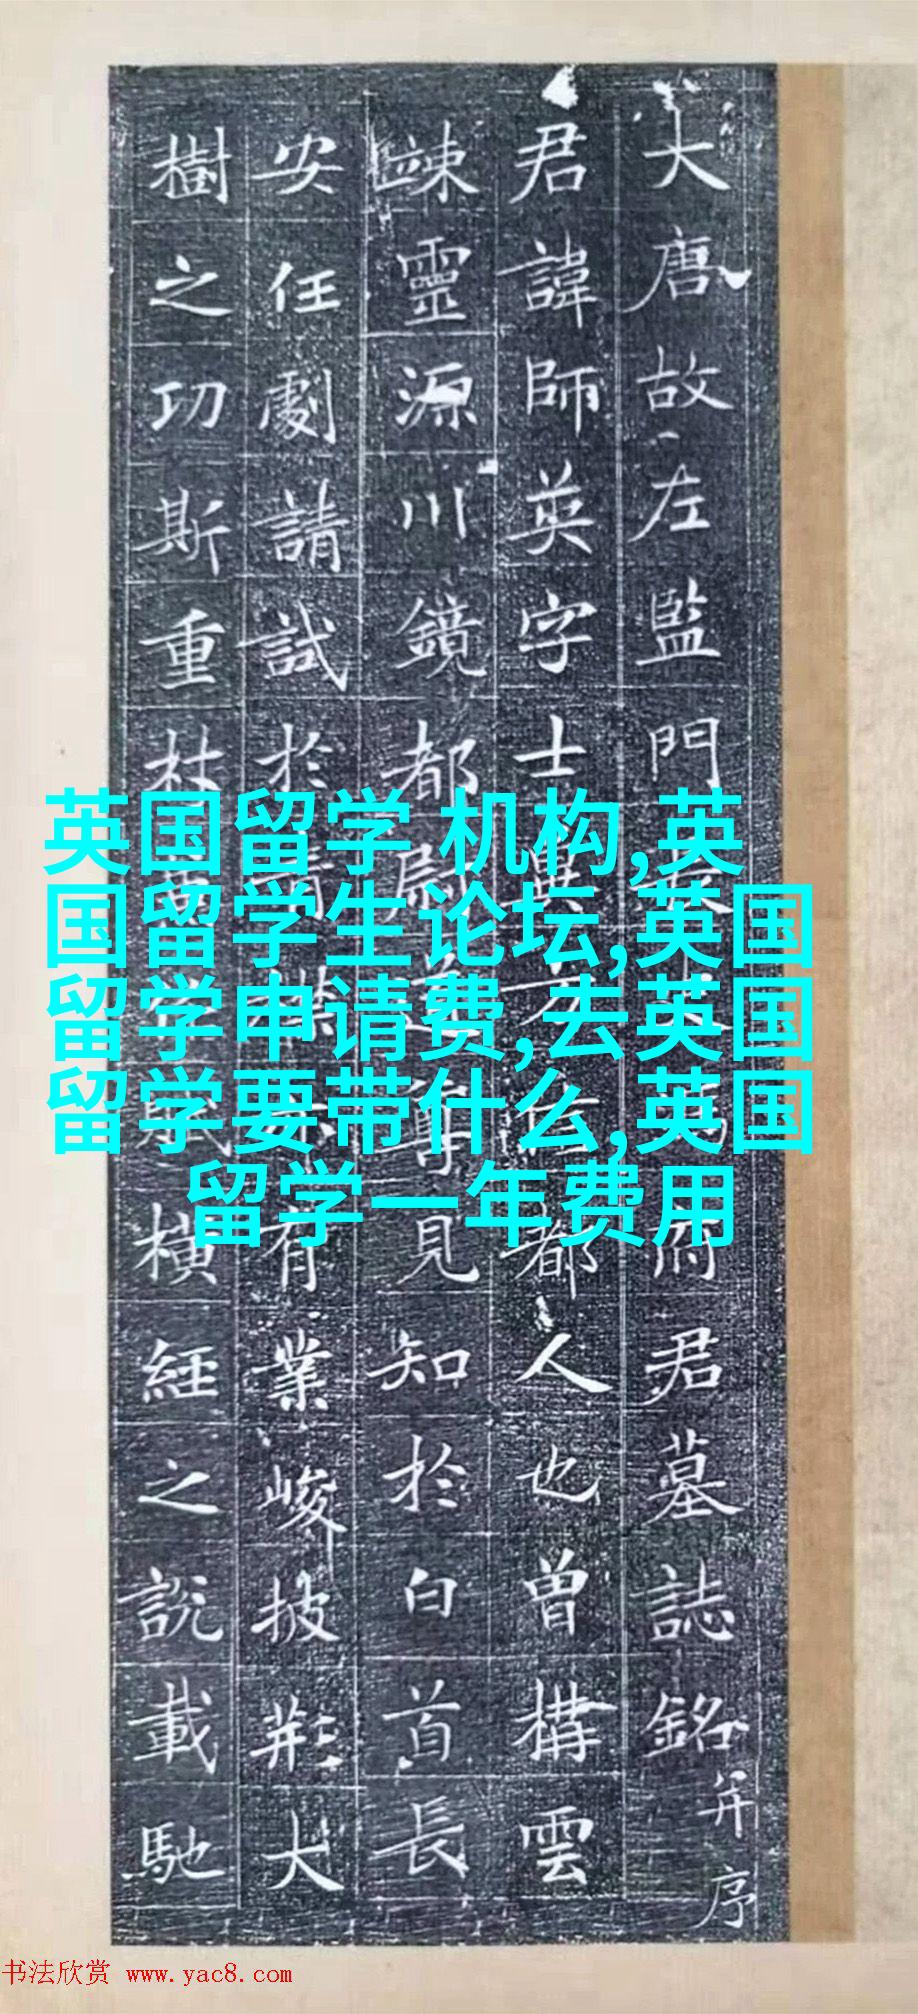 大唐故左監門府君墓誌銘并序
君諱師英字士都人也曾構雲
竦靈源川鏡都尉見知於白首長
安任劇請試於有業峻披荊大
樹之功斯重杜橫經之說載馳
英国留学 机构,英
国留学生论坛,英国
留学申请费,去英国
留学要带什么,英国
留学一年费用
书法欣赏 www.yac8.com